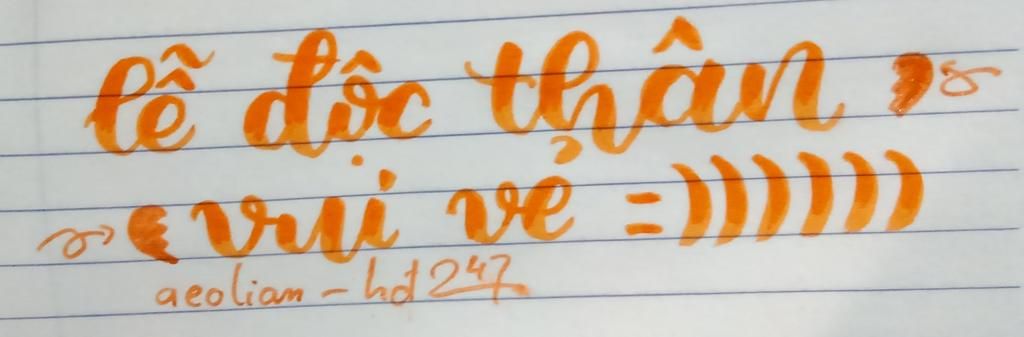 lễ độc thân
vui vẻ =)))))))
aeolian - hđ 247